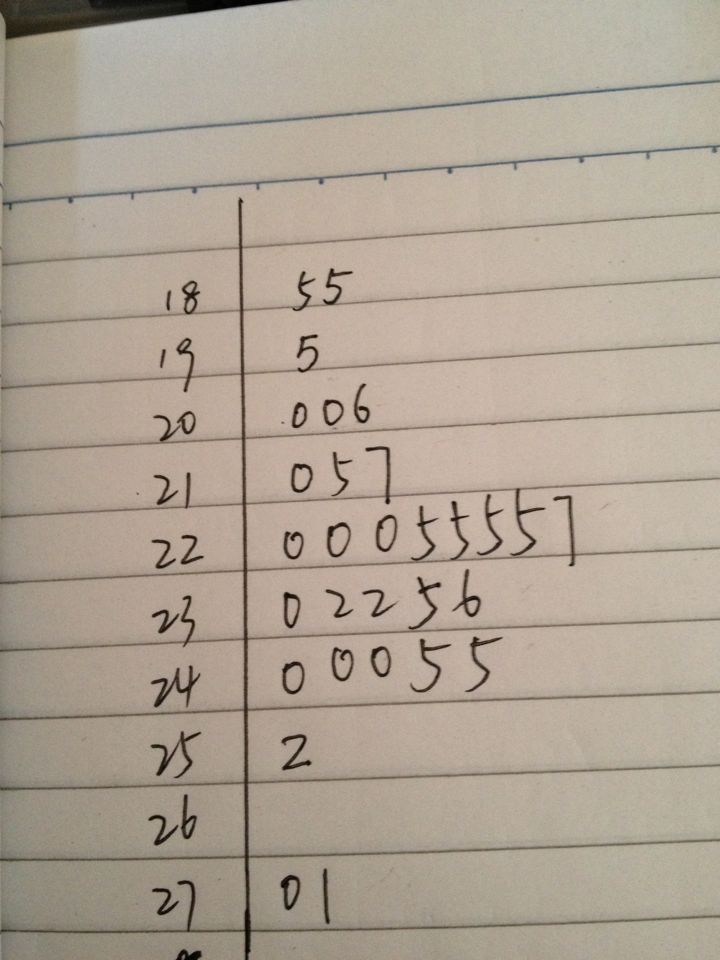 18 55
19 5
20 006
21 057
22 00055557
23 02256
24 00055
25 2
26
27 01